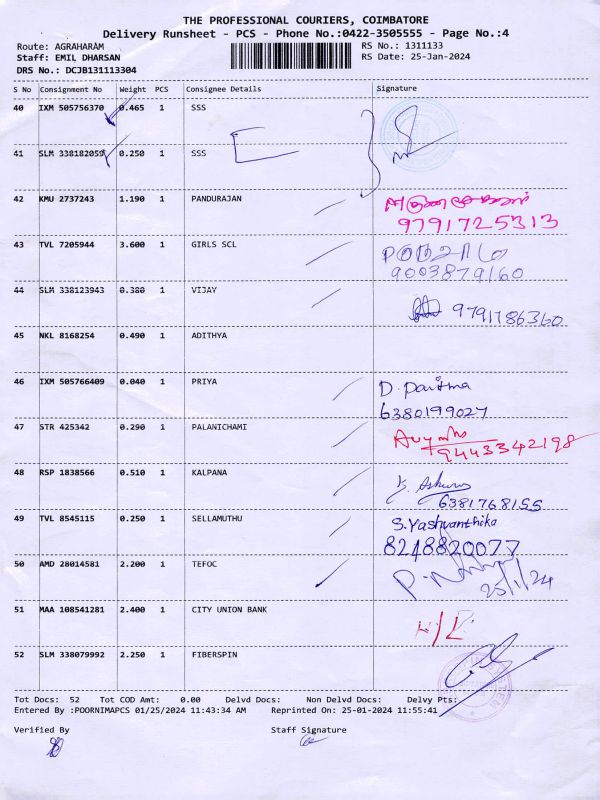 THE PROFESSIONAL COURIERS, COIMBATORE
Delivery Runsheet - PCS - Phone No.:0422-3505555 - Page No.:4
Route: AGRAHARAM RS No.: 1311133
Staff: EMIL DHARSAN RS Date: 25-Jan-2024
DRS No.: DCJB131113304
S No Consignment No Weight PCS Consignee Details Signature
40 IXM 505756370 0.465 1 SSS
41 SLM 338182059 0.250 1 SSS
42 KMU 2737243 1.190 1 PANDURAJAN
9791725313
43 TVL 7205944 3.600 1 GIRLS SCL
9003879160
44 SLM 338123943 0.380 1 VIJAY
9791786360
45 NKL 8168254 0.490 1 ADITHYA
46 IXM 505766409 0.040 1 PRIYA
D. Pavithra
6380199027
47 STR 425342 0.290 1 PALANICHAMI
9443342198
48 RSP 1838566 0.510 1 KALPANA
6381768155
49 TVL 8545115 0.250 1 SELLAMUTHU
S.Yashvanthika
8248820077
50 AMD 28014581 2.200 1 TEFOC
25/1/24
51 MAA 108541281 2.400 1 CITY UNION BANK
52 SLM 338079992 2.250 1 FIBERSPIN
Tot Docs: 52 Tot COD Amt: 0.00 Delvd Docs: Non Delvd Docs: Delvy Pts:
Entered By :POORNIMAPCS 01/25/2024 11:43:34 AM Reprinted On: 25-01-2024 11:55:41
Verified By Staff Signature